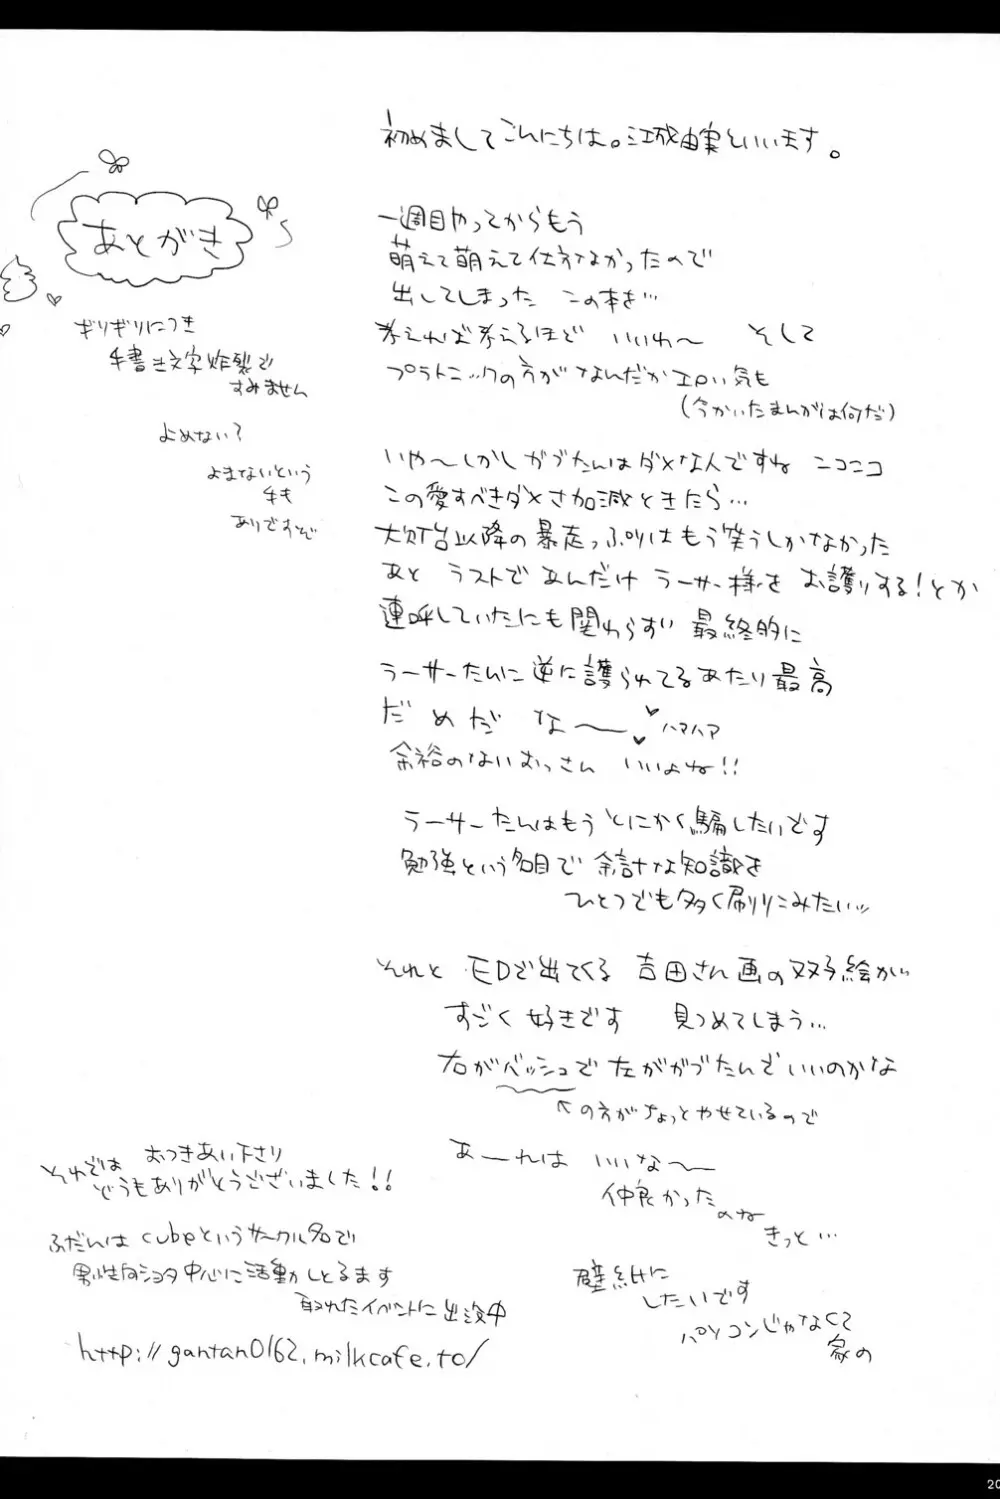 初めましてこんにちは。江城由実といいます。
あとがき
ギリギリにつき
手書き文字炸裂で
すみません
よめない?
よまないという
手も
ありですぞ
一週目やってからもう
萌えて萌えて仕方なかったので
出してしまった この本を…
考えれば考えるほど いいわ〜 そして
プラトニックの方がなんだかエロい気も
(今かいたまんがは何だ)
いや〜しかしガブたんはダメな人ですね ニコニコ
この愛すべきダメさ加減ときたら…
大灯台以降の暴走っぷりはもう笑うしかなかった
あと ラストであんだけ ラーサー様を お護りする!とか
連呼していたにも関わらず 最終的に
ラーサーたんに逆に護られてるあたり最高
だめだな〜 ハァハァ
余裕のないおっさん いいよね!!
ラーサーたんはもう とにかく騙したいです
勉強という名目で 余計な知識を
ひとつでも多く刷りこみたい
それと EDで出てくる 吉田さん画の双子絵が
すごく 好きです 見つめてしまう…
右がバッシュで 左がガブたんでいいのかな
↖の方がちょっとやせているので
あーれは いいな〜
仲良かった
のね
きっと…
壁紙に
したいです
パソコンじゃなくて
家の
それでは おつきあい下さり
どうもありがとうございました!!
ふだんはcubeというサークル名で
男性向ショタ中心に活動しとるます
取れたイベントに出没中
http://gantan0162.milkcafe.to/